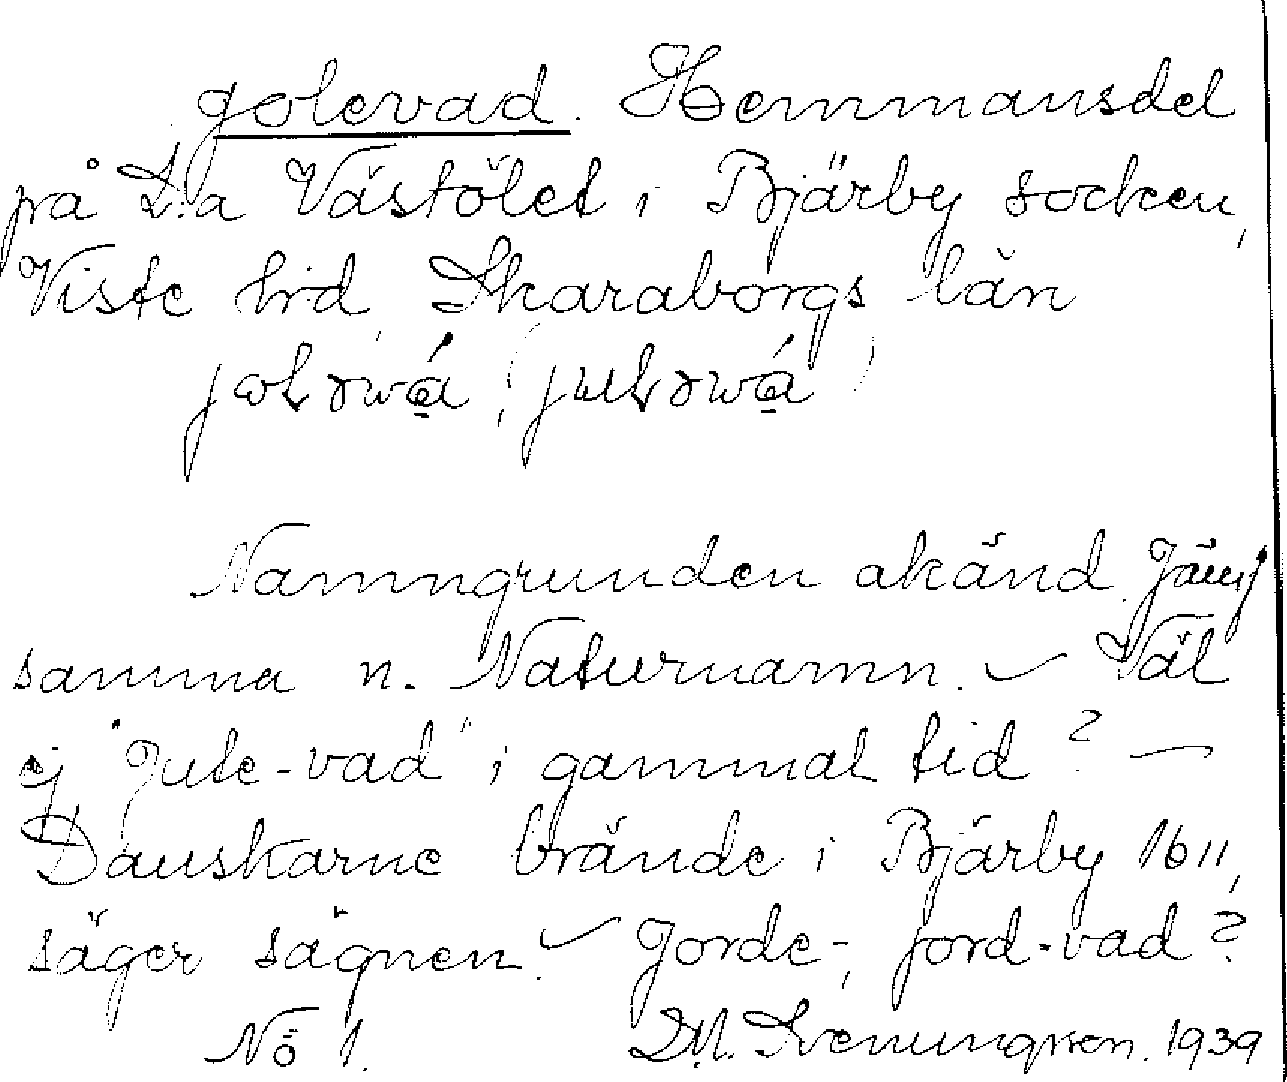 golevad. Hemmansdel
på L:a Västölet i Bjärby socken,
Viste hrd, Skaraborgs län
Namngrunden okänd. Jämf
samma n. Naturnamn. – Väl
ej "Jute-vad" i gammal tid? –
Danskarne brände i Bjärby 1611,
säger sägnen. – Jorde-, jord-vad?
No 1. D.M. Sveningsson. 1939